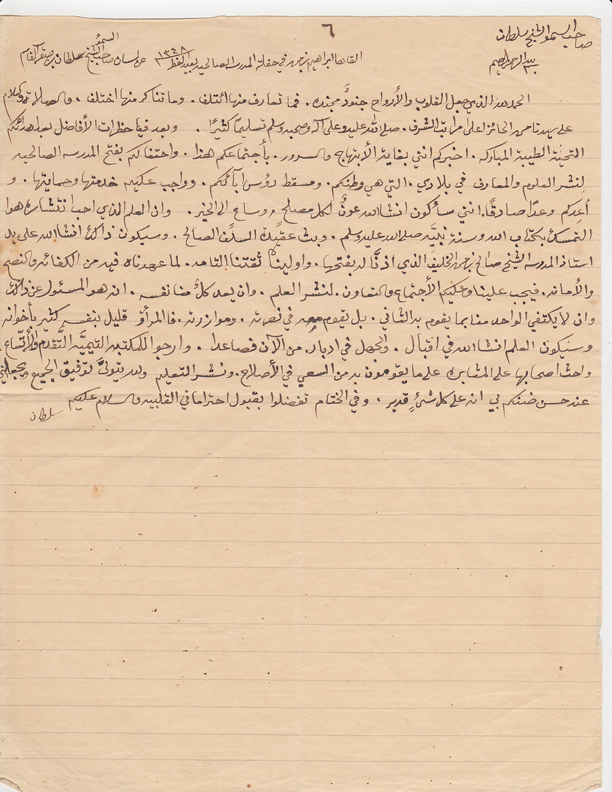 ٦
صاحب السمو الشيخ سلطان
بسم الله الرحمن الرحيم
القاها ابراهيم بن في حفلة المدرسة الصالحية بعيد الفطر ١٣٤٨ عن لسان صاحب السمو الشيخ سلطان بن صقر القاسمي
الحمد لله الذي جعل القلوب والأرواح جنودٌ مجنده. فما تعارف منها ائتلف. وما تناكر منها اختلف. والصلاة والسلام
على سيدنا محمد الحائز اعلى مراتب الشرف. صلى الله عليه وعلى آله وصحبه وسلم تسليماً كثيراً. وبعد فيا حضرات الأفاضل بعد هدائكم
التحية الطيبة المباركه. اخبركم انني بغاية الأبتهاج والسرور. بأجتماعكم لهذا. واحتفالكم بفتح المدرسه الصالحيه
لنشر العلوم والمعارف في بلادي. التي هي وطنكم. ومسقط رؤس آبائكم. وواجب عليكم خدمتها وحمايتها. و
أعدكم وعداً صادقاً. انني سأكون انشاالله عونٌ لكل مصلح وساع الى الخير. وان العلم الذي احب انتشاره هوا
التمسك بكتاب الله وسنة نبيّه صلى الله عليه وسلم. وبث عقيدة السلف الصالح. وسيكون ذالك انشاالله على يد
استاذ المدرسه الشيخ صالح بن الخليف الذي اذنّا له بفتحها. واوليناه ثقتنا التامه. لما عهدناه فيه من الكفائه والنصح
والأمانه. فيجب علينا وعليكم الأجتماع والتعاون. لنشر العلم. وان يعد كلٌ منا نفسه. انه هو المسئول عن ذالك
وان لا يكتفي الواحد منا بما يقوم به الثاني. بل يقوم معه في نصرته. وموازرته. فالمرأو قليل بنفسه كثير بأخوانه
وسيكون العلم انشاالله في اقبال. والجهل في ادبار. من الآن فصاعدا. وارجوا للمكتبه التيميّه التقدم والأتساع
واحث اصحابها على المثابره على ما يقومون به من السعي في الأصلاح. ونشر التعليم والله يتولىَّ توفيق الجميع ويجعلني
عند حسن ضنكم بي انه على كل شئٍ قدير. وفي الختام تفضلوا بقبول احتراماتي القلبيه والسلام عليكم
سلطان